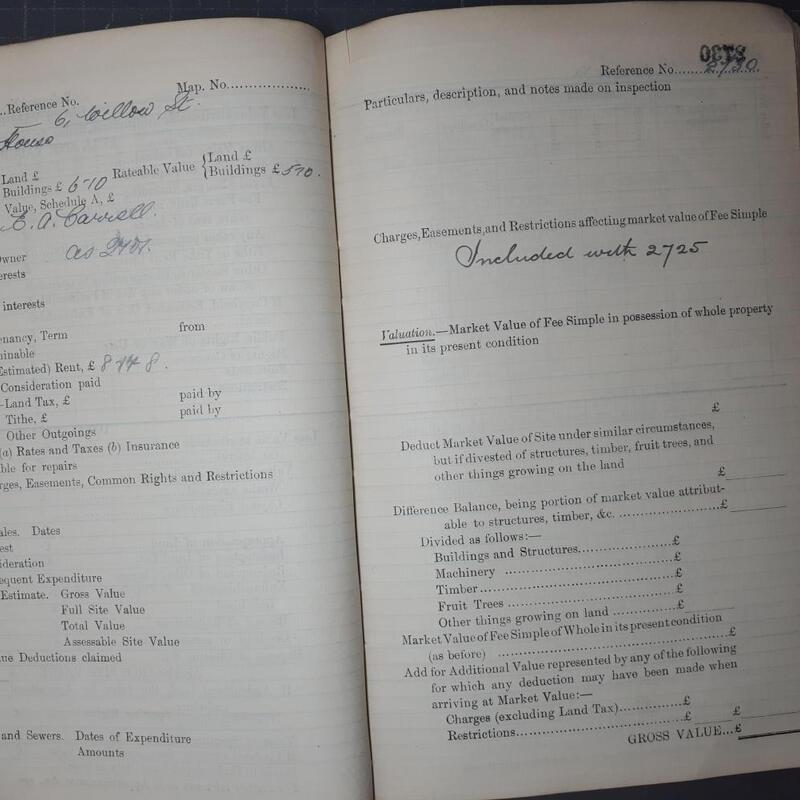 Reference No.
Map. No.
6, Willow St.
House
Land £
Buildings £ 6-10 Rateable Value { Land £
Buildings £ 5-10.
Value, Schedule A, £
E. A. Carrell.
Owner as
erests
interests
enancy, Term from
minable
Estimated) Rent, £
Consideration paid
-Land Tax, £ paid by
Tithe, £ paid by
Other Outgoings
(a) Rates and Taxes (b) Insurance
ble for repairs
rges, Easements, Common Rights and Restrictions
ales. Dates
est
ideration
equent Expenditure
Estimate. Gross Value
Full Site Value
Total Value
Assessable Site Value
ue Deductions claimed
and Sewers. Dates of Expenditure
Amounts
Reference No. 2730
Particulars, description, and notes made on inspection
Charges, Easements, and Restrictions affecting market value of Fee Simple
Included with 2725
Valuation.—Market Value of Fee Simple in possession of whole property
in its present condition
£
Deduct Market Value of Site under similar circumstances,
but if divested of structures, timber, fruit trees, and
other things growing on the land
£
Difference Balance, being portion of market value attribut-
able to structures, timber, &c. £
Divided as follows:—
Buildings and Structures £
Machinery £
Timber £
Fruit Trees £
Other things growing on land £
Market Value of Fee Simple of Whole in its present condition
(as before) £
Add for Additional Value represented by any of the following
for which any deduction may have been made when
arriving at Market Value:—
Charges (excluding Land Tax) £
Restrictions £ £
GROSS VALUE... £